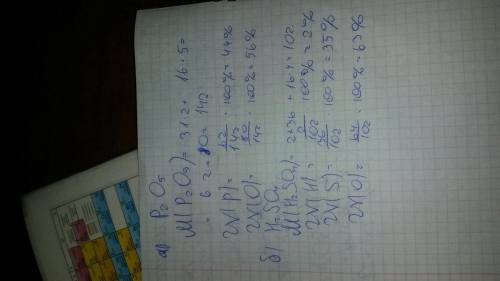 а) P₂O₅
M(P₂O₅) = 31·2 + 16·5 =
= 62 + 80 = 142
W(P) = 62/142 · 100% = 44%
W(O) = 80/142 · 100% = 56%
б) H₂SO₄
M(H₂SO₄) = 2+36 + 16·4 = 102
W(H) = 2/102 100% = 2%
W(S) = 36/102 · 100% = 35%
W(O) = 64/102 · 100% = 63%